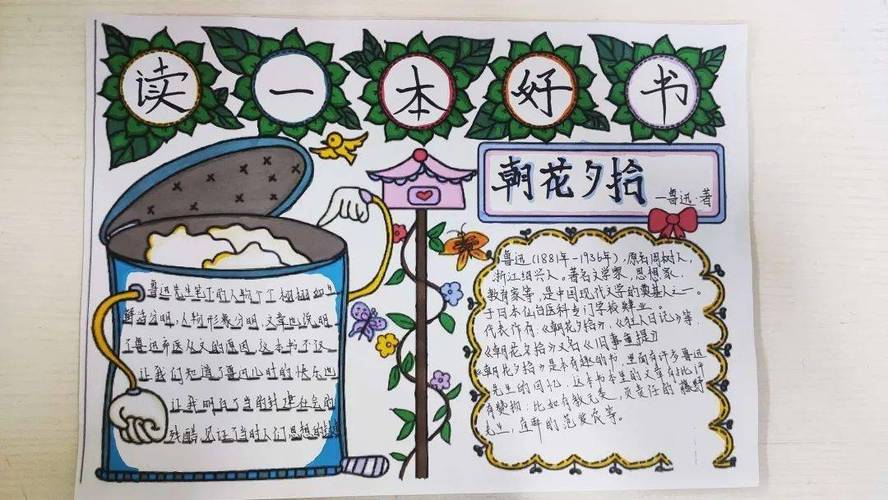 读一本好书
朝花夕拾
一鲁迅·著
鲁迅先生笔下的人物个个栩栩如生
鲜活分明,人物形象分明,文章也说明
了鲁迅弃医从文的原因,这本书不仅
让我们知道了鲁迅儿时的快乐也
让我明白了当时封建社会的
残酷,见证了当时人们思想的
鲁迅(1881年-1936年),原名周树人,
浙江绍兴人。著名文学家、思想家、
教育家等,是中国现代文学的奠基人之一。
于日本仙台医科专门学校肄业。
代表作有《朝花夕拾》,《狂人日记》等
《朝花夕拾》又名《旧事重提》
《朝花夕拾》是本有趣的书,里面有许多鲁迅
先生的回忆,这本书本里的文章有批评
有赞扬:比如有教无类、负责任的藤野
先生,直率的范爱农等。